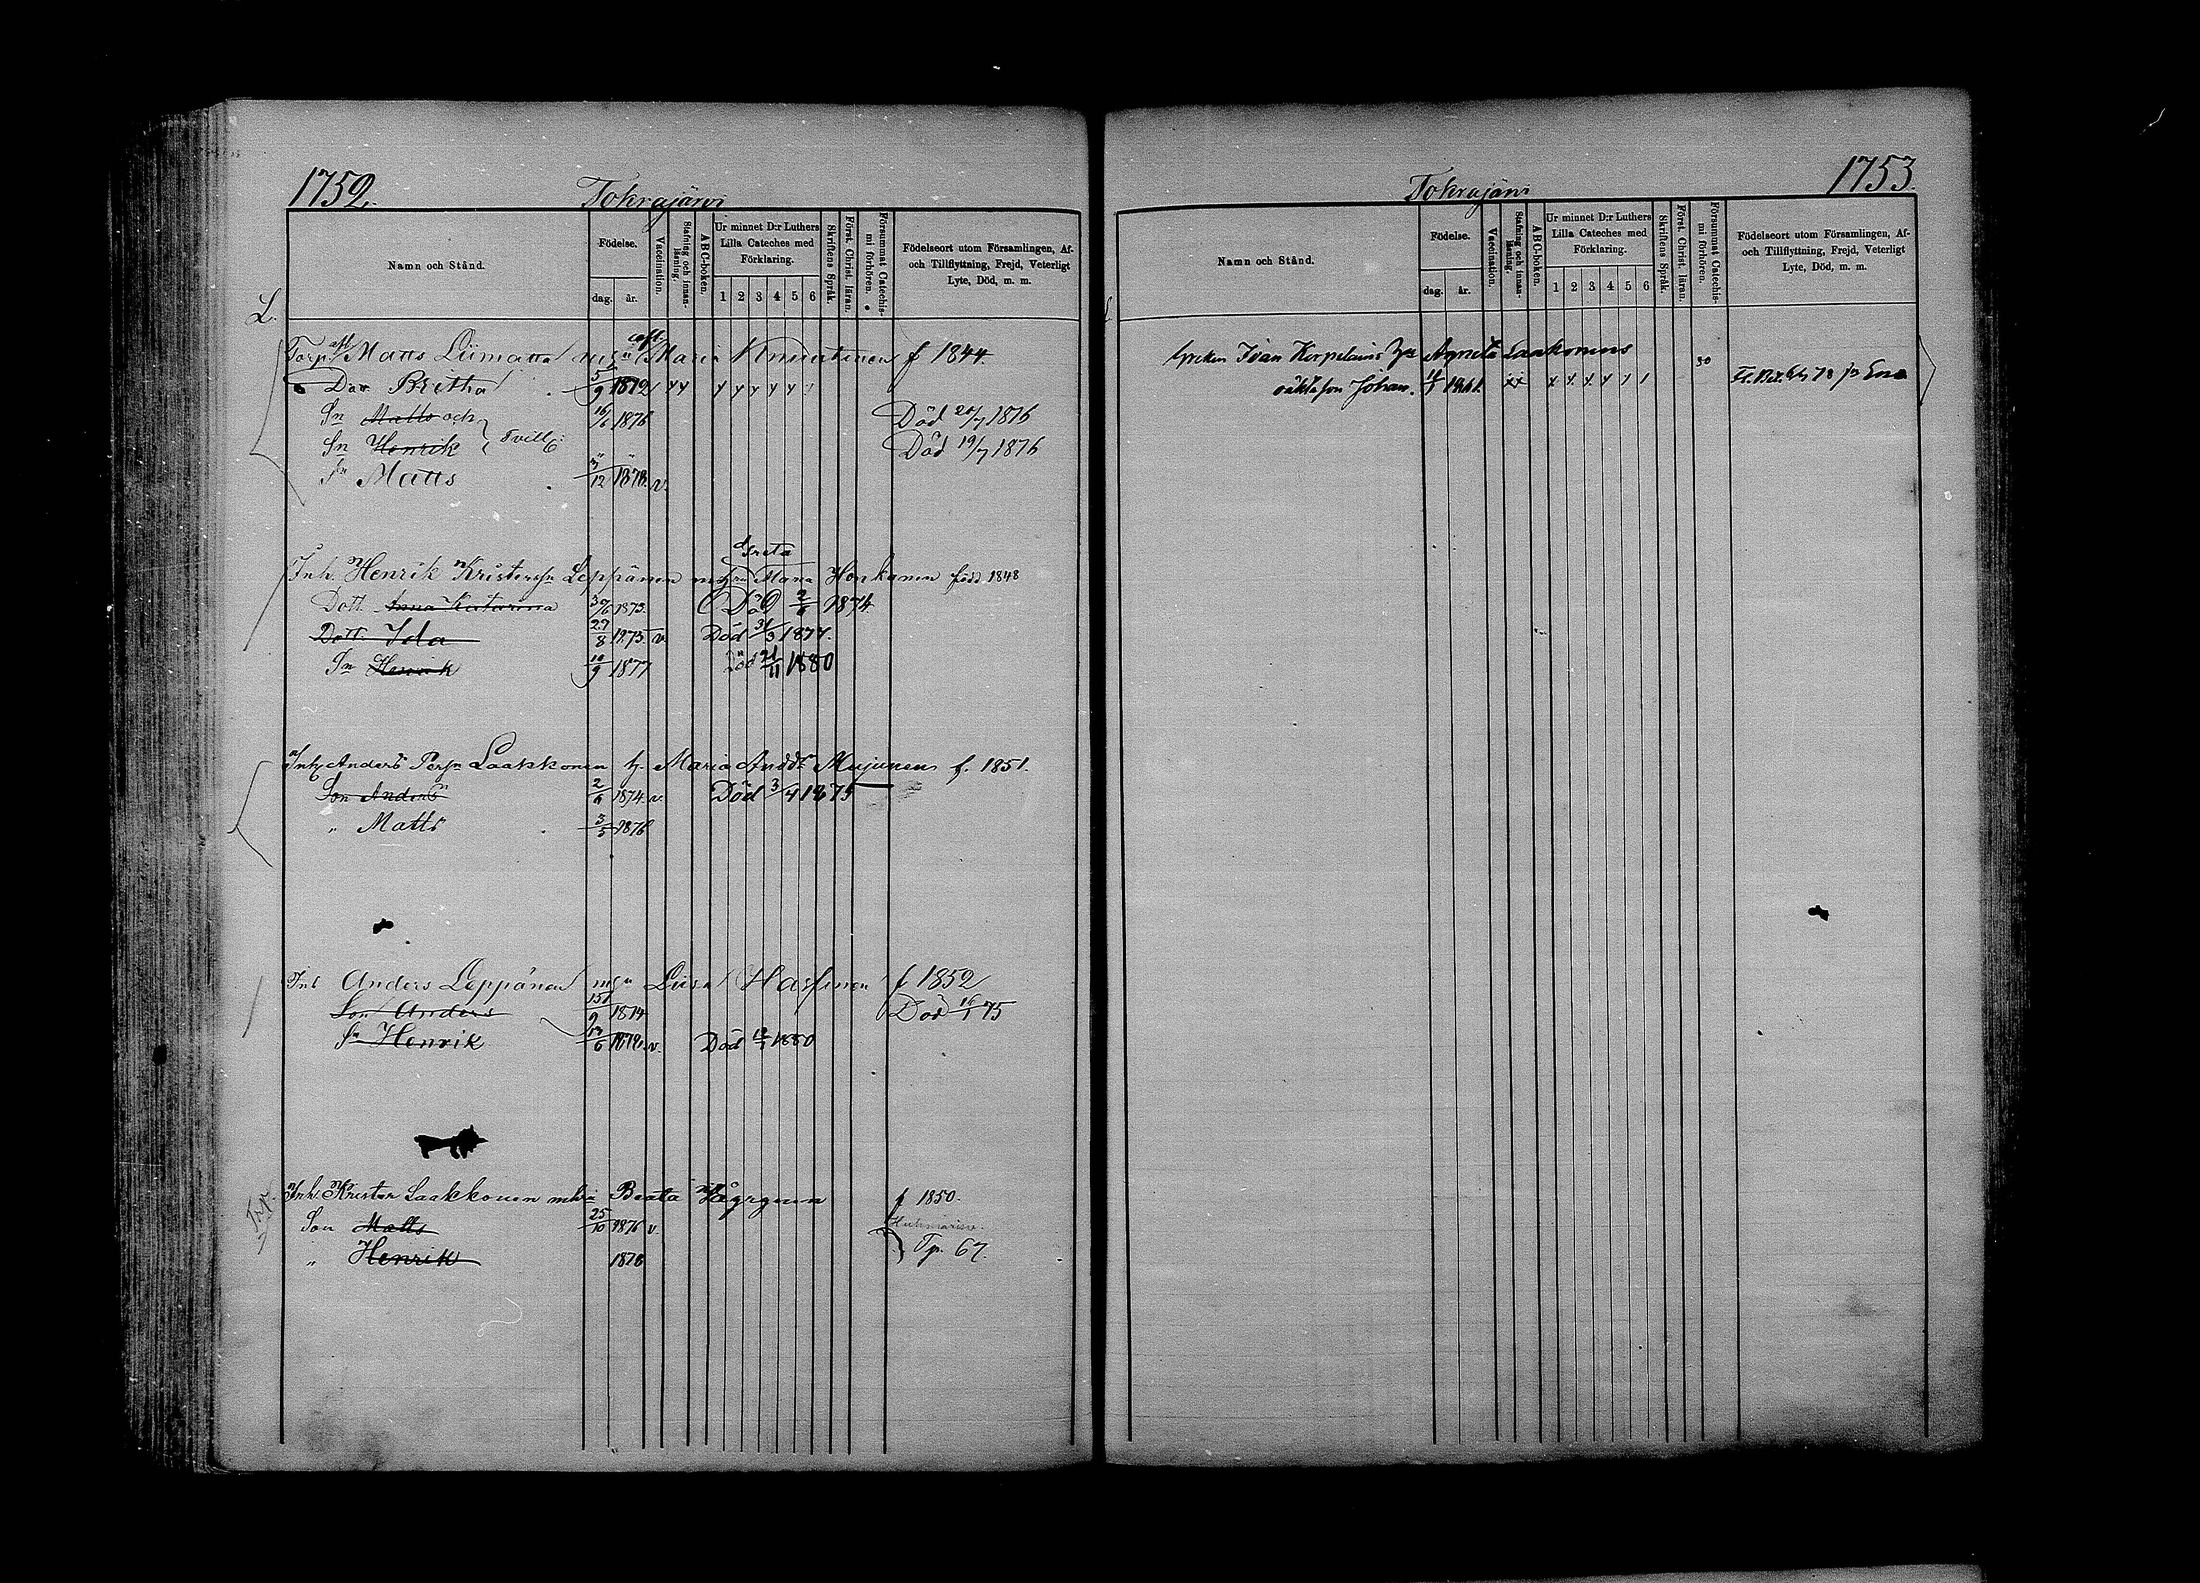 1752.
Tokrajärvi
Namn och Stånd.
Födelse.
dag.
år.
Vaccination.
Stafning och innan-läsning.
ABC-boken.
Ur minnet D:r Luthers
Lilla Cateches med
Förklaring.
1 2 3 4 5 6
Skriftens Språk.
Först. Christ. läran.
Försummat Catechis-mi förhören.
Födelseort utom Församlingen, Af-
och Tillflyttning, Frejd, Veterligt
Lyte, Död, m. m.
L.
Torp Matts Liimatta Maria Kinnunen f 1844
Dar Britha 5/9 1872
Sn Matts och 16/6 1876 Död 20/7 1876
Sn Henrik Tvill: " " Död 19/7 1876
Sn Matts 3/12 1878. v.
Greta
Inh. Henrik Kristersn Leppänen Maria Honkanen född 1848
Dott. Anna Katarina 30/6 1873. Död 2/6 1874
Dott. Ida 29/8 1873. v. Död 31/3 1877.
Sn Henrik 10/9 1877 Död 21/11 1880
Inh Anders Persn Laakkonen h. Maria Andd:r Mujunen f. 1851.
Son Anders 2/6 1874. v. Död 3/4 1875
" Matts 3/5 1876
Inh Anders Leppänen Liisa f 1852
Son Anders 1874 Död 16/1 75
Sn Henrik v. Död 1880
Inh. Krister Laakkonen Beata f 1850.
Trp.
Son Matts 25/10 1876 v.
" Henrik 1878 Tp. 67.
1753.
Tokrajärvi
Namn och Stånd.
Födelse.
dag.
år.
Vaccination.
Stafning och innan-läsning.
ABC-boken.
Ur minnet D:r Luthers
Lilla Cateches med
Förklaring.
1 2 3 4 5 6
Skriftens Språk.
Först. Christ. läran.
Försummat Catechis-mi förhören.
Födelseort utom Församlingen, Af-
och Tillflyttning, Frejd, Veterligt
Lyte, Död, m. m.
Greken Ivan Korpelains Agneta Laakonens 30
oäkta son Johan. 1861. Fl. Bet. 64/78 fr Eno